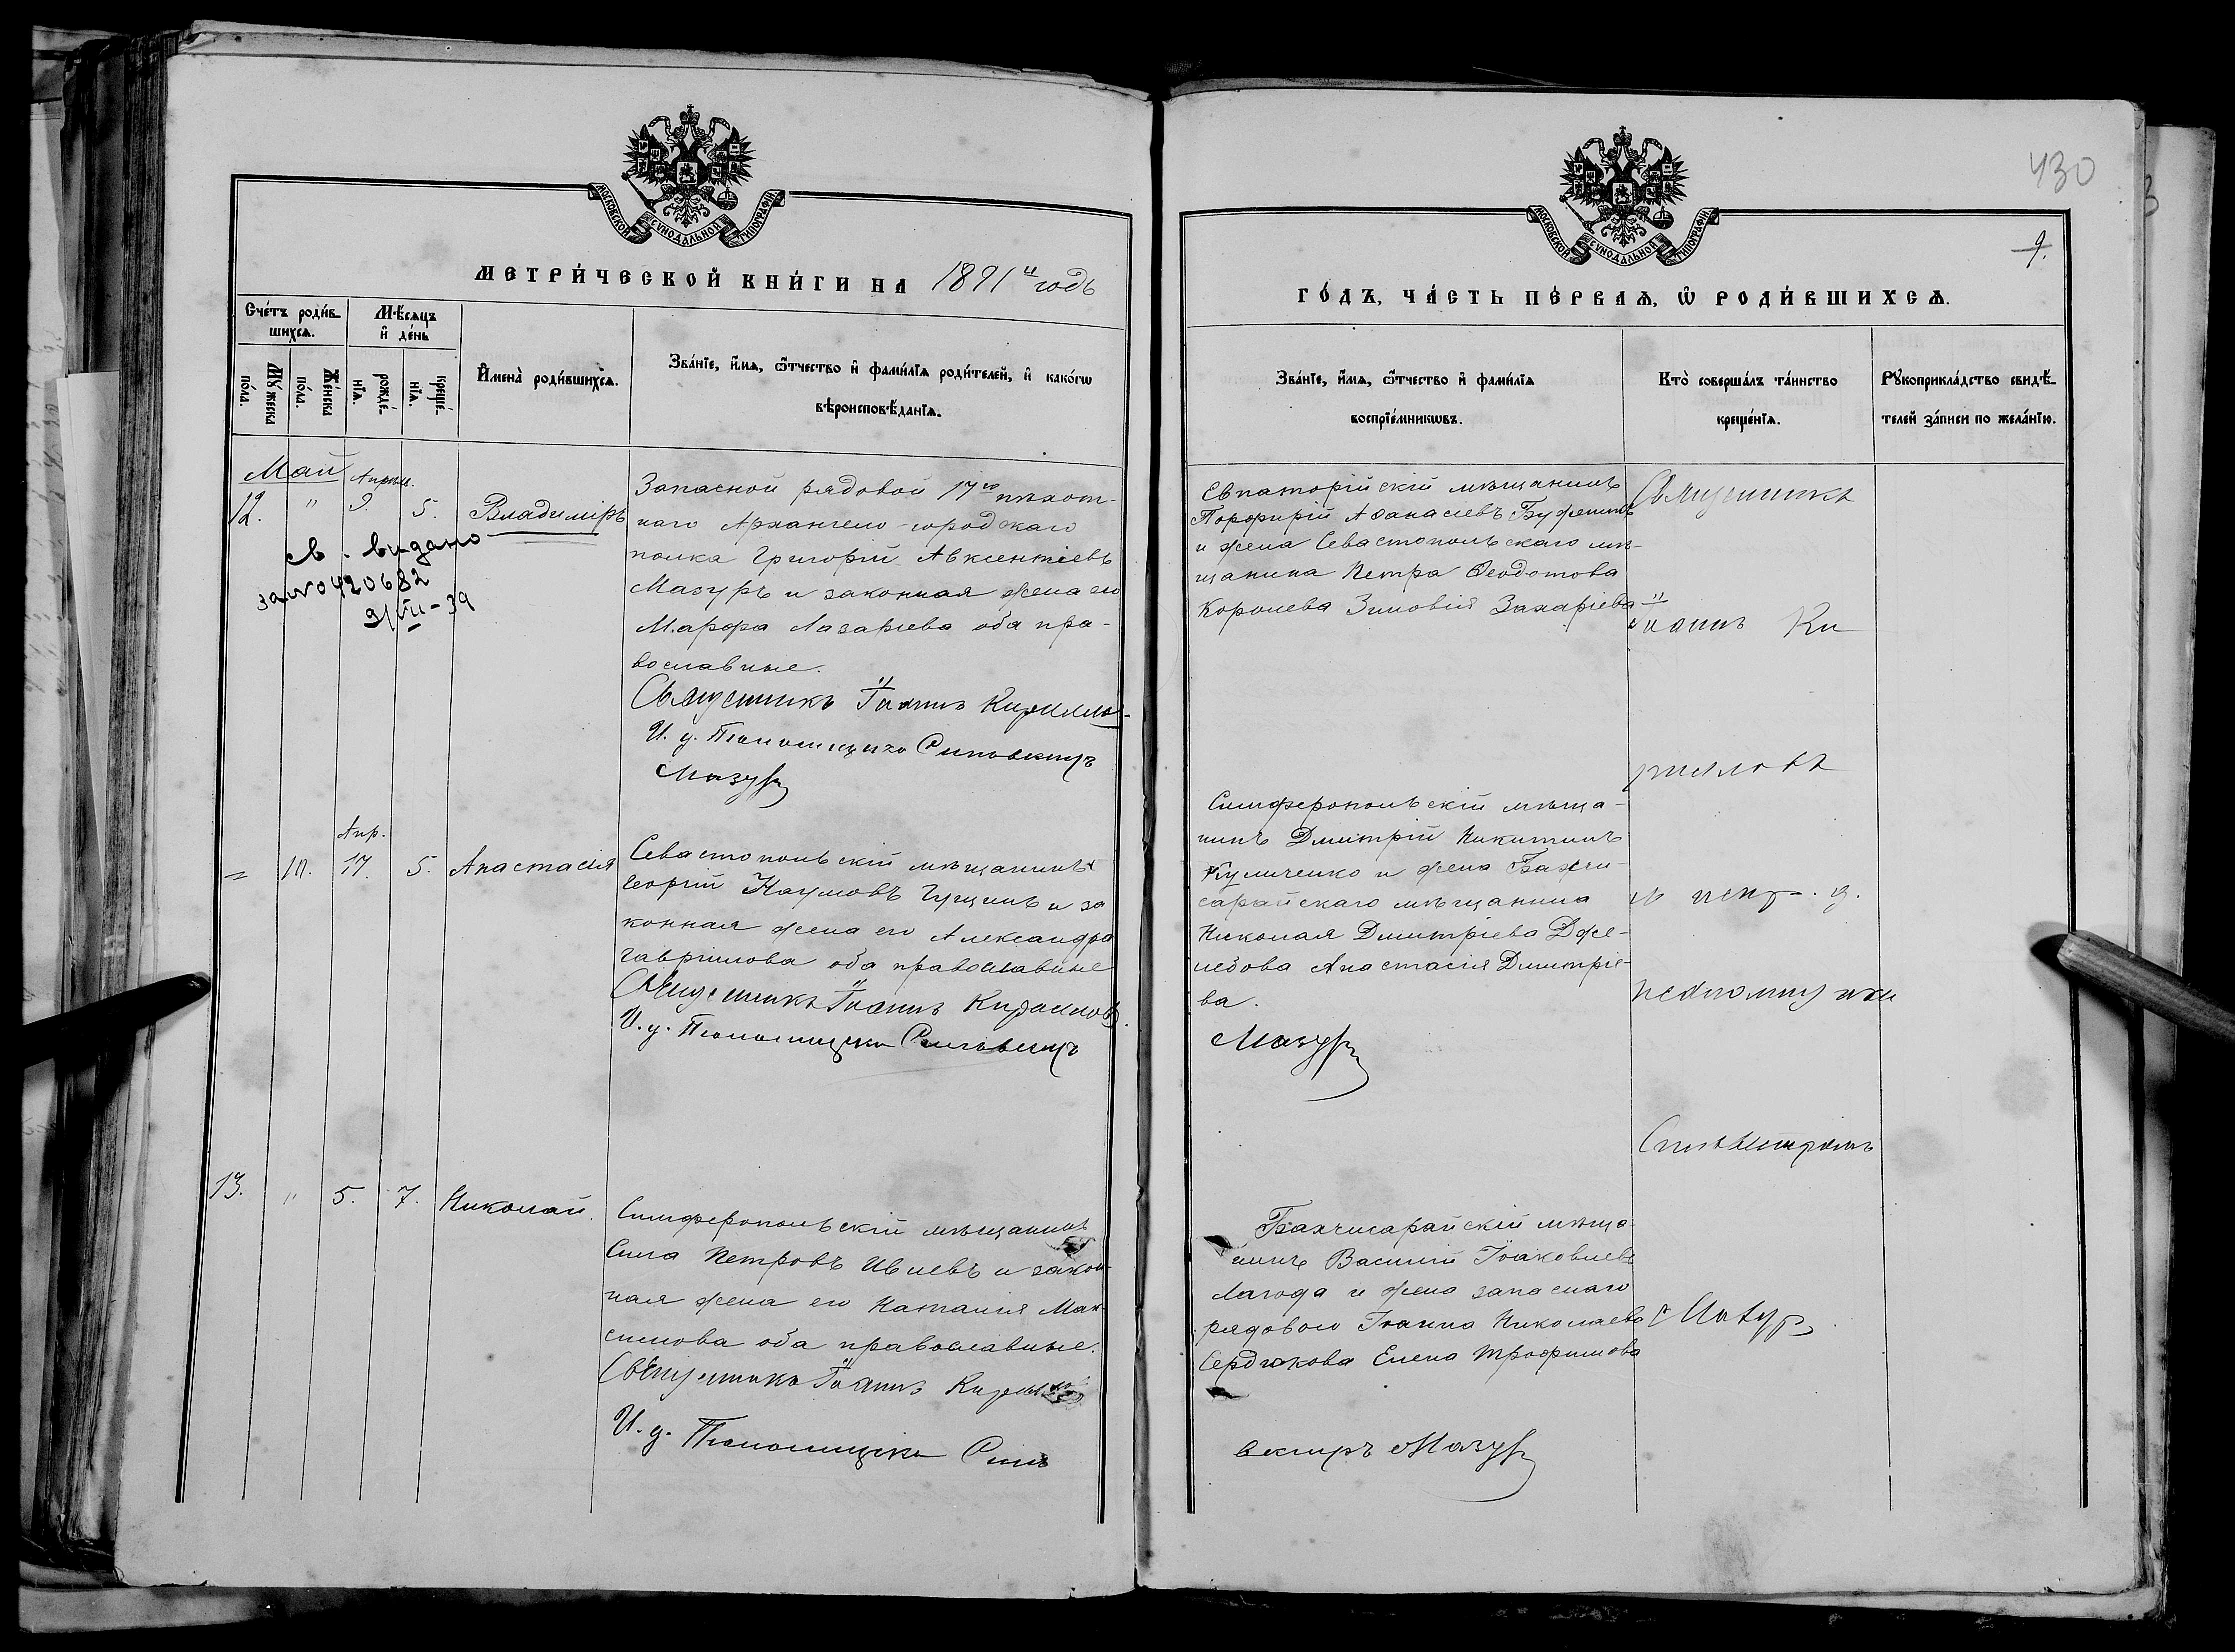 430
9.
МОСКОВСКОЙ СѴНОДАЛЬНОЙ ТИПОГРАФІИ
МЕТРИЧЕСКОЙ КНИГИ НА 1891 й годъ
Счетъ родив-
шихся.
Мѣсяцъ
и день
Мужеска
пола.
Женска
пола.
рожде-
нія.
креще-
нія.
Имена родившихся.
Званіе, имя, отчество и фамилія родителей, и какогѡ
вѣроисповѣданія.
Май
Апрѣл.
12. " 9. 5. Владиміръ
св. видано
за №0420682
9/VII-39
Запасной рядовой 17го пѣхот-
наго Архангело-городскаго
полка Григорій Авксентіевъ
Мазуръ и законная жена его
Марфа Лазарева оба пра-
вославные.
Священникъ Іоаннъ Кириллов
И. д. Псаломщика Сильвестръ
Мазуръ
Апр.
= 10. 17. 5. Анастасія
Севастопольскій мѣщанинъ
Георгій Наумовъ Гущинъ и за
конная жена его Александра
Гаврилова оба православные
Священникъ Іоаннъ Кириллов.
И. д. Псаломщика Сильвестръ
13. " 5. 7. Николай.
Симферопольскій мѣщанинъ
Сила Петровъ Ивлевъ и закон-
ная жена его Наталія Мак-
симова оба православные.
Священникъ Іоаннъ Кирилло
И. д. Псаломщика Силь
МОСКОВСКОЙ СѴНОДАЛЬНОЙ ТИПОГРАФІИ
ГОДЪ, ЧАСТЬ ПЕРВАЯ, Ѿ РОДИВШИХСЯ.
Званіе, имя, отчество и фамилія
воспріемникѡвъ.
Кто совершалъ таинство
крещенія.
Рукоприкладство свидѣ-
телей записи по желанію.
Евпаторійскій мѣщанинъ
Порфирій Аѳанасіевъ
и жена Севастопольскаго мѣ-
щанина Петра Ѳеодотова
Королева Зиновія Захаріева
Священникъ
Іоаннъ Ки
рилловъ
Симферопольскій мѣща-
нинъ Дмитрій Никитинъ
Куличенко и жена Бахчи-
сарайскаго мѣщанина
Николая Дмитріева Дже-
лебова Анастасія Дмитріе-
ва.
Мазуръ
съ испр. д.
псаломщика
Сильвестромъ
Бахчисарайскій мѣща-
нинъ Василій Іоаковлевъ
Лагода и жена запаснаго
рядового Іоанна Николаева
Сердюкова Елена Трофимова
Мазур
вестръ Мазуръ